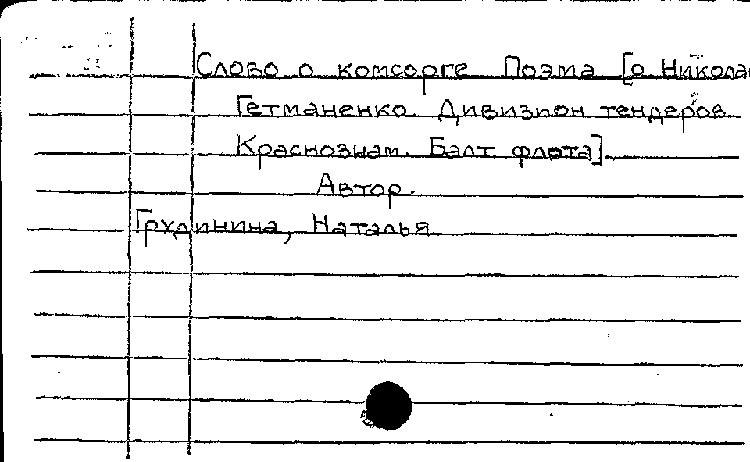 Слово о комсорге Поэма [о Никола
Гетманенко. Дивизион тендеров
Краснознам. Балт флота].
Автор.
Грудинина, Наталья